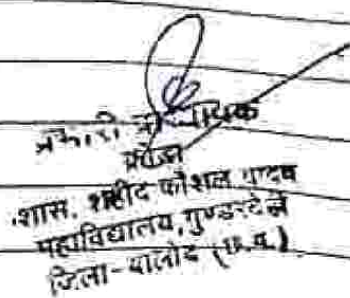 क्रीडा
शास. शहीद कौशल यादव
महाविद्यालय, गुण्डरदेही
जिला-बालोद (छ.ग.)